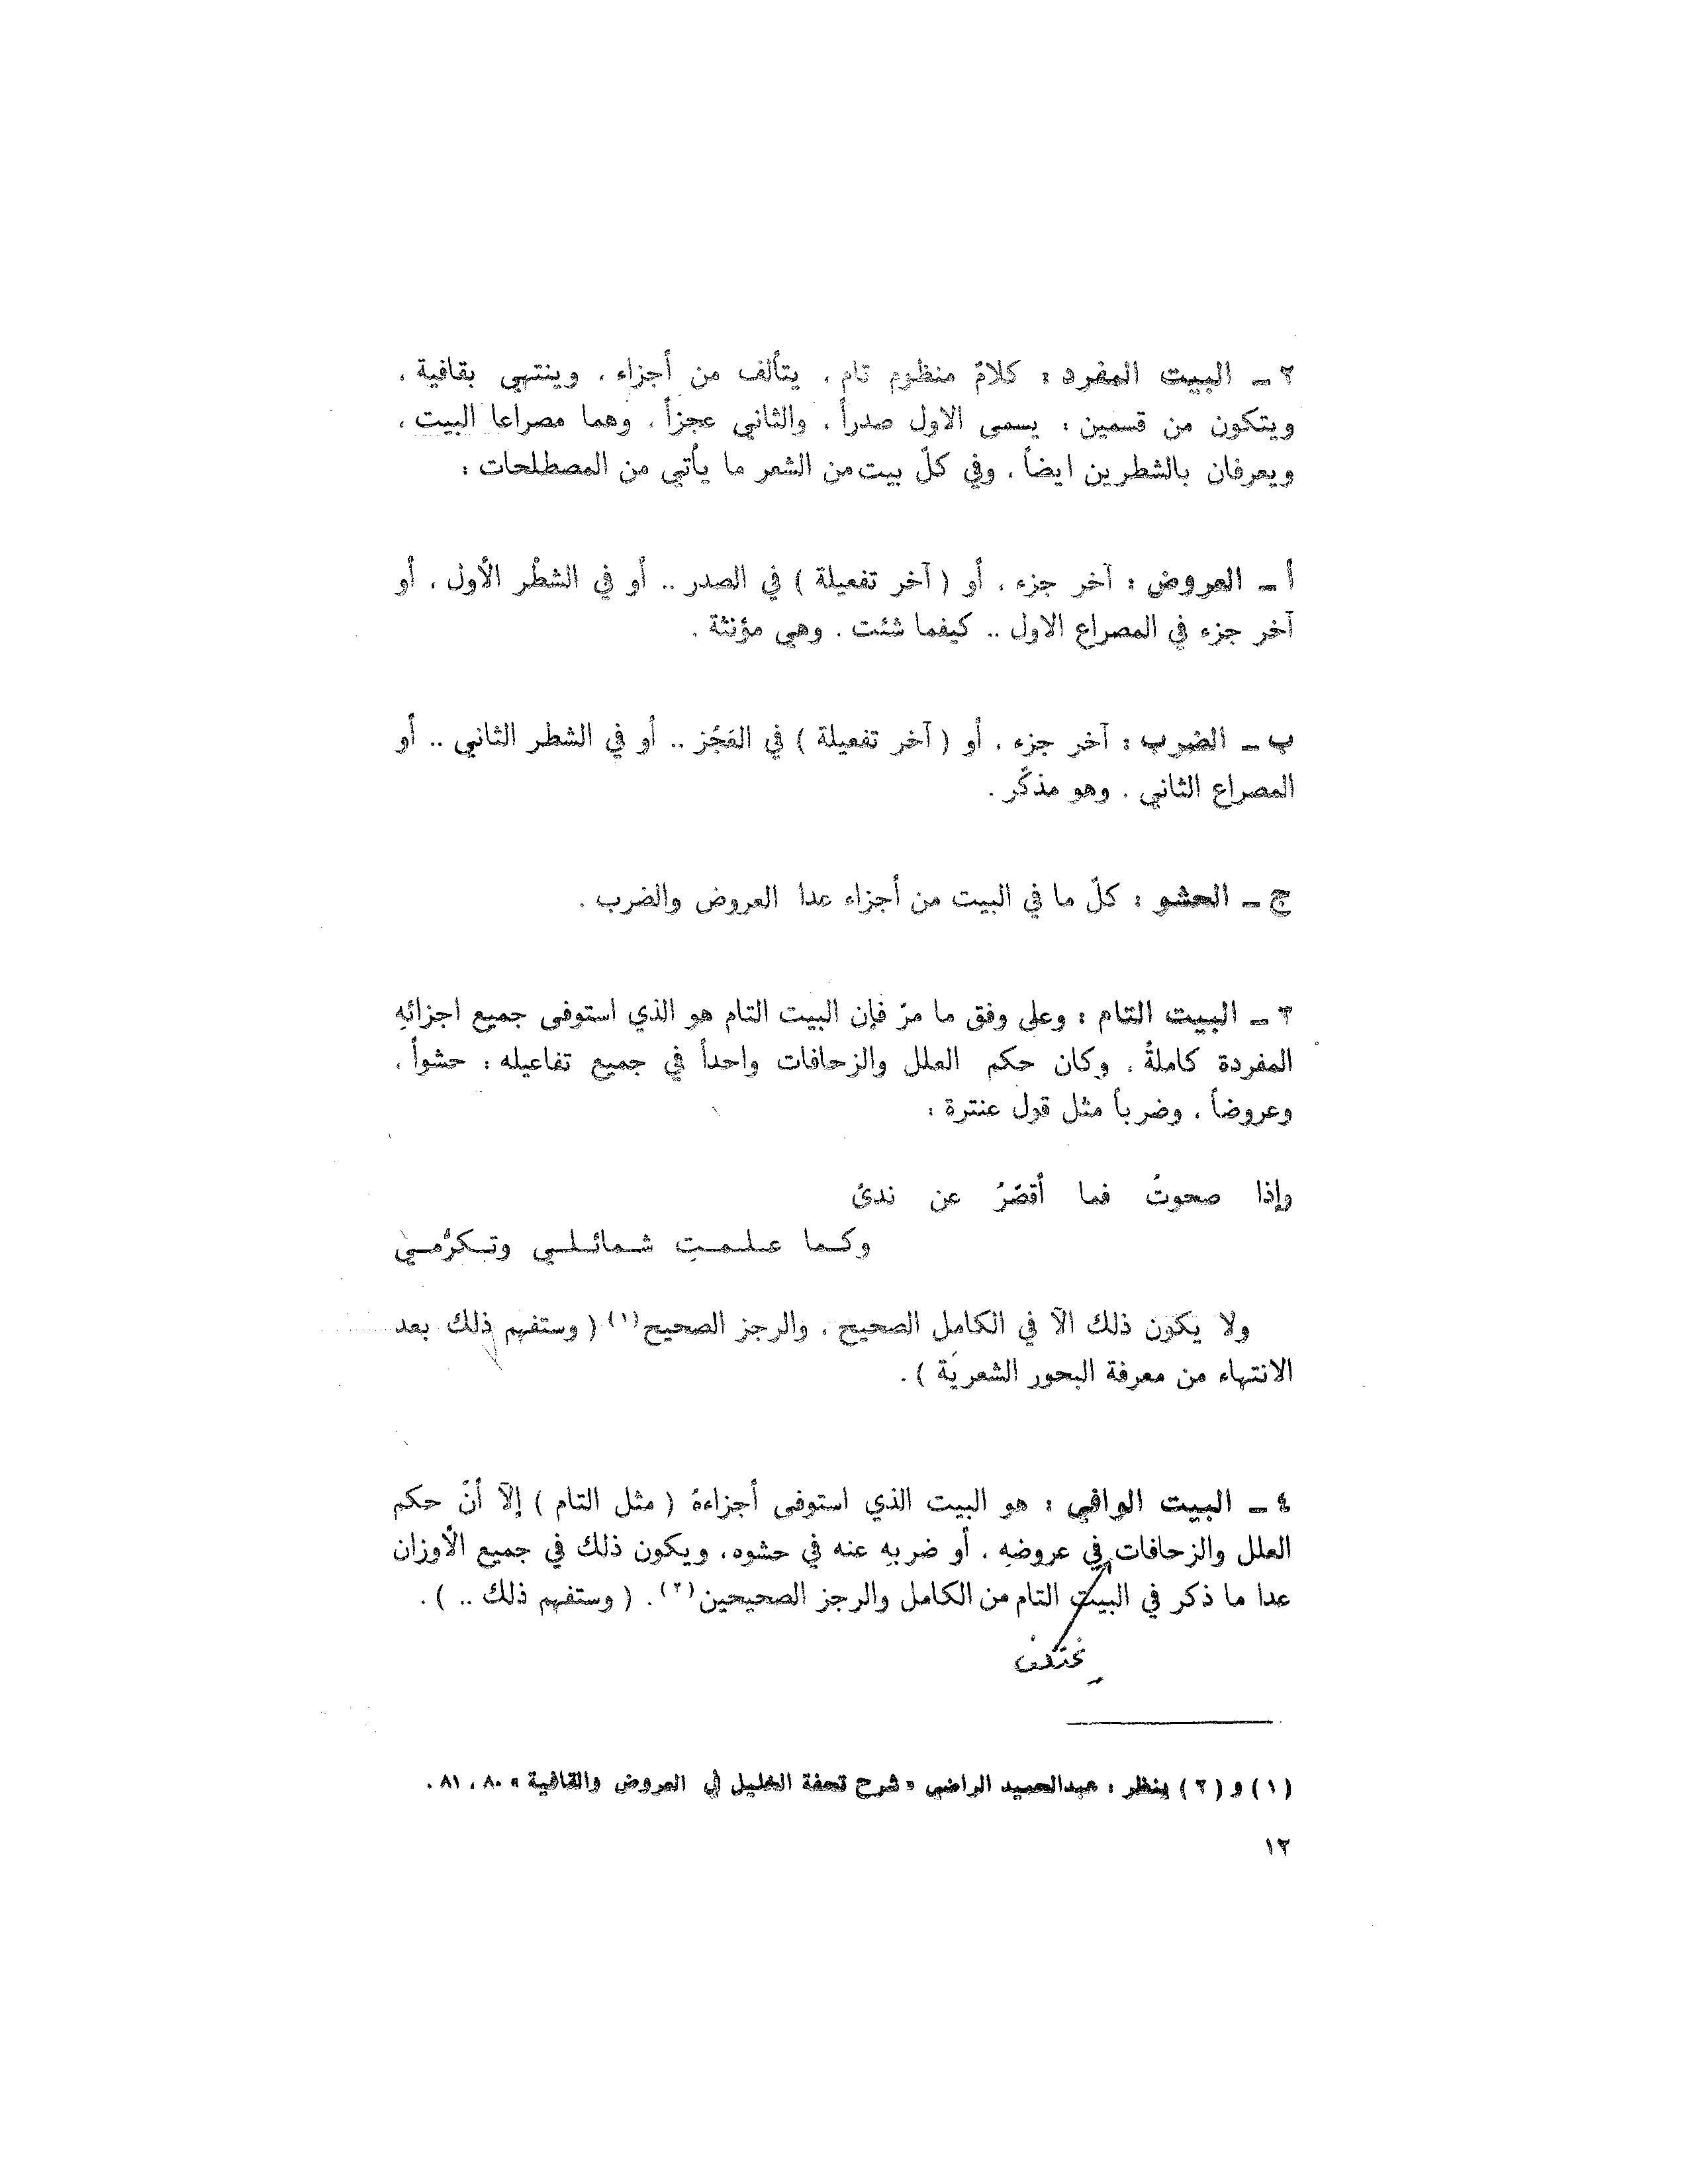 ٢ ـ البيت المفرد : كلامٌ منظوم تام ، يتألف من أجزاء ، وينتهي بقافية ،
ويتكون من قسمين : يسمى الاول صدراً ، والثاني عجزاً ، وهما مصراعا البيت ،
ويعرفان بالشطرين ايضاً ، وفي كلّ بيت من الشعر ما يأتي من المصطلحات :
أ ـ العروض : آخر جزء ، أو ( آخر تفعيلة ) في الصدر .. أو في الشطْر الأول ، أو
آخر جزء في المصراع الاول .. كيفما شئت . وهي مؤنثة .
ب ـ الضرب : آخر جزء ، أو ( آخر تفعيلة ) في العَجُز .. أو في الشطر الثاني .. أو
المصراع الثاني . وهو مذكّر .
ج ـ الحشو : كلّ ما في البيت من أجزاء عدا العروض والضرب .
٣ ـ البيت التام : وعلى وفق ما مرّ فإن البيت التام هو الذي استوفى جميع اجزائهِ
المفردة كاملةً ، وكان حكم العلل والزحافات واحداً في جميع تفاعيله : حشواً ،
وعروضاً ، وضرباً مثل قول عنترة :
وإذا صحوتُ فما أقصّرُ عن ندىً
وكما علمتِ شمائلي وتكرُّمي
ولا يكون ذلك الآ في الكامل الصحيح ، والرجز الصحيح(١) ( وستفهم ذلك بعد
الانتهاء من معرفة البحور الشعريَة ) .
٤ ـ البيت الوافي : هو البيت الذي استوفى أجزاءهُ ( مثل التام ) إلآ أنّ حكم
العلل والزحافات في عروضهِ ، أو ضربهِ عنه في حشوه، ويكون ذلك في جميع الأوزان
عدا ما ذكر في البيت التام من الكامل والرجز الصحيحين(٢) . ( وستفهم ذلك .. ) .
يختلف
(١) و (٢) ينظر : عبدالحميد الراضي « شرح تحفة الخليل في العروض والقافية » ٨٠ ، ٨١ .
١٢